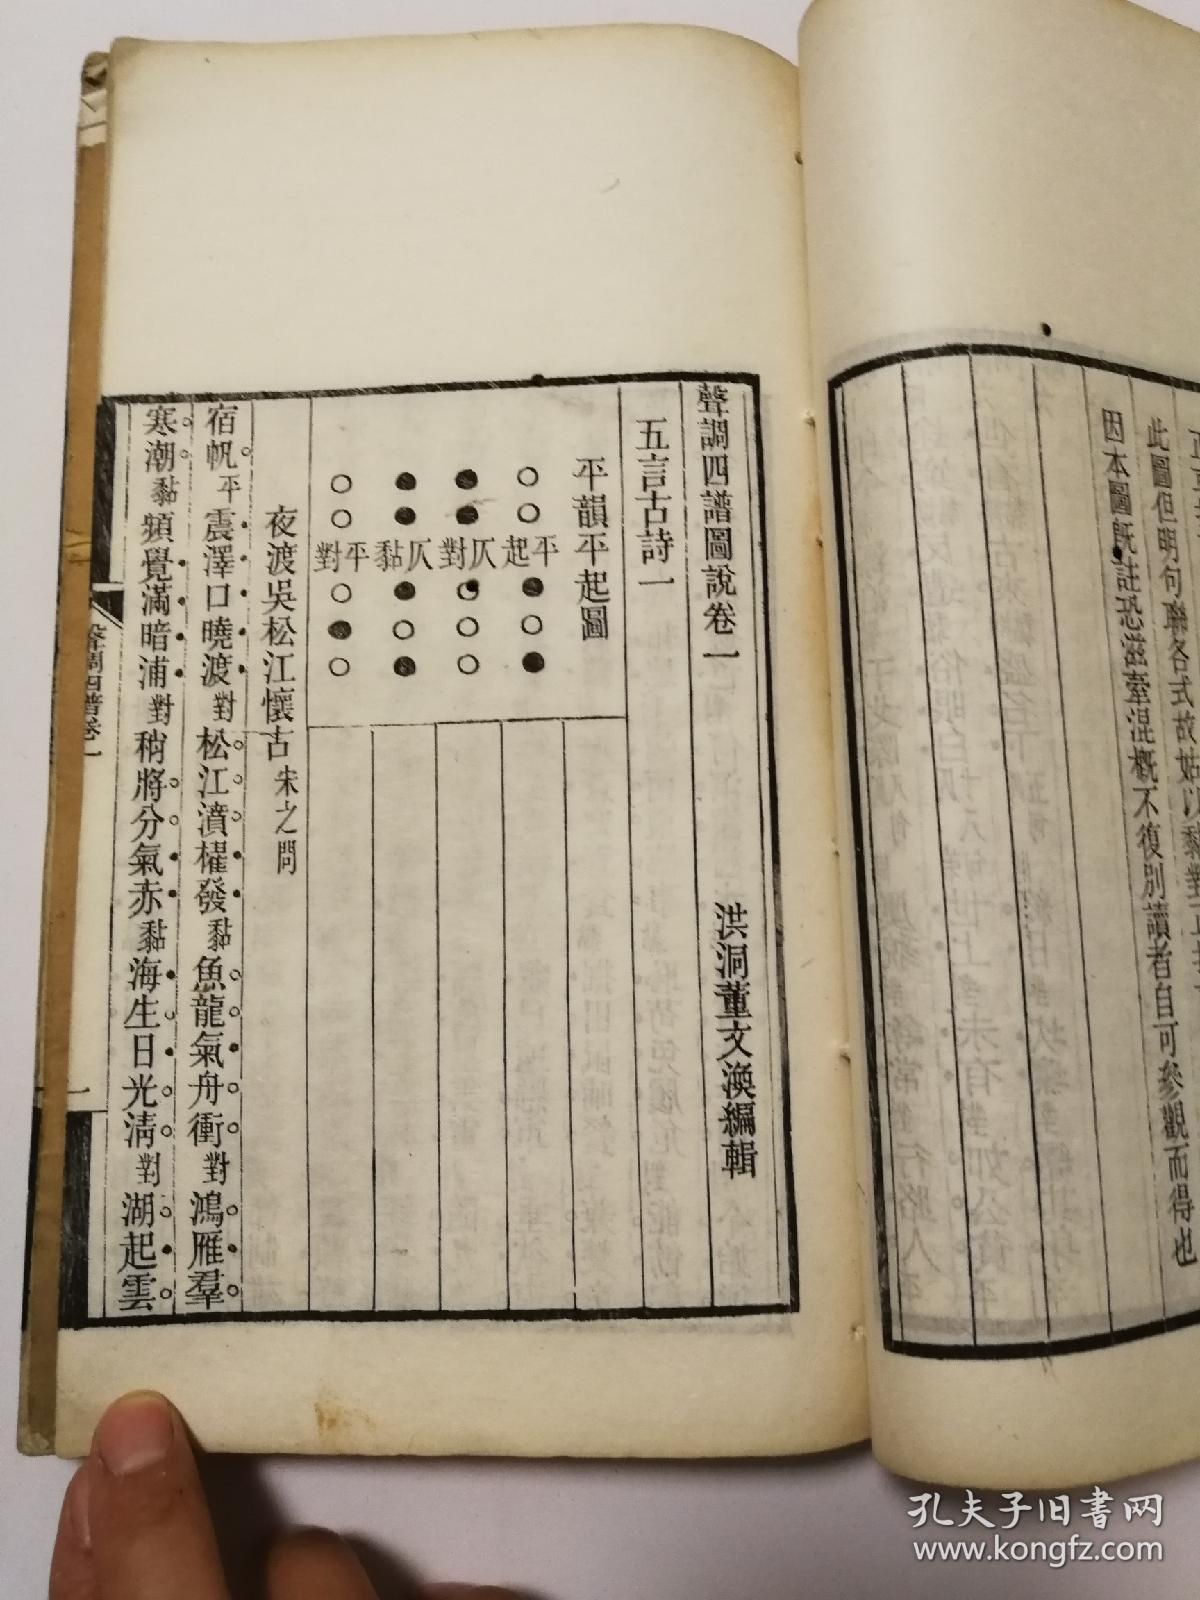 此圖但明句聯各式故姑以黏對
因本圖既註恐滋牽混概不復別讀者自可參觀而得也
聲調四譜圖說卷一
洪洞董文渙編輯
五言古詩一
平韻平起圖
平起
仄對
仄黏
平對
夜渡吳松江懷古 朱之問
宿帆平震澤口曉渡對松江濆櫂發黏魚龍氣舟衝對鴻雁羣
寒潮黏頻覺滿暗浦對稍將分氣赤黏海生日光清對湖起雲
聲調四譜卷一
一
孔夫子旧书网
www.kongfz.com